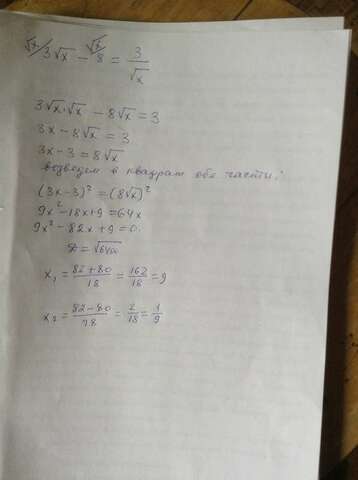 √x/ 3√x - √x/ 8 = 3/√x
3√x·√x - 8√x = 3
3x - 8√x = 3
3x - 3 = 8√x
возведем в квадрат обе части:
(3x-3)² = (8√x)²
9x² - 18x + 9 = 64x
9x² - 82x + 9 = 0.
x₁ = 82+80/18 = 162/18 = 9
x₂ = 82-80/18 = 2/18 = 1/9